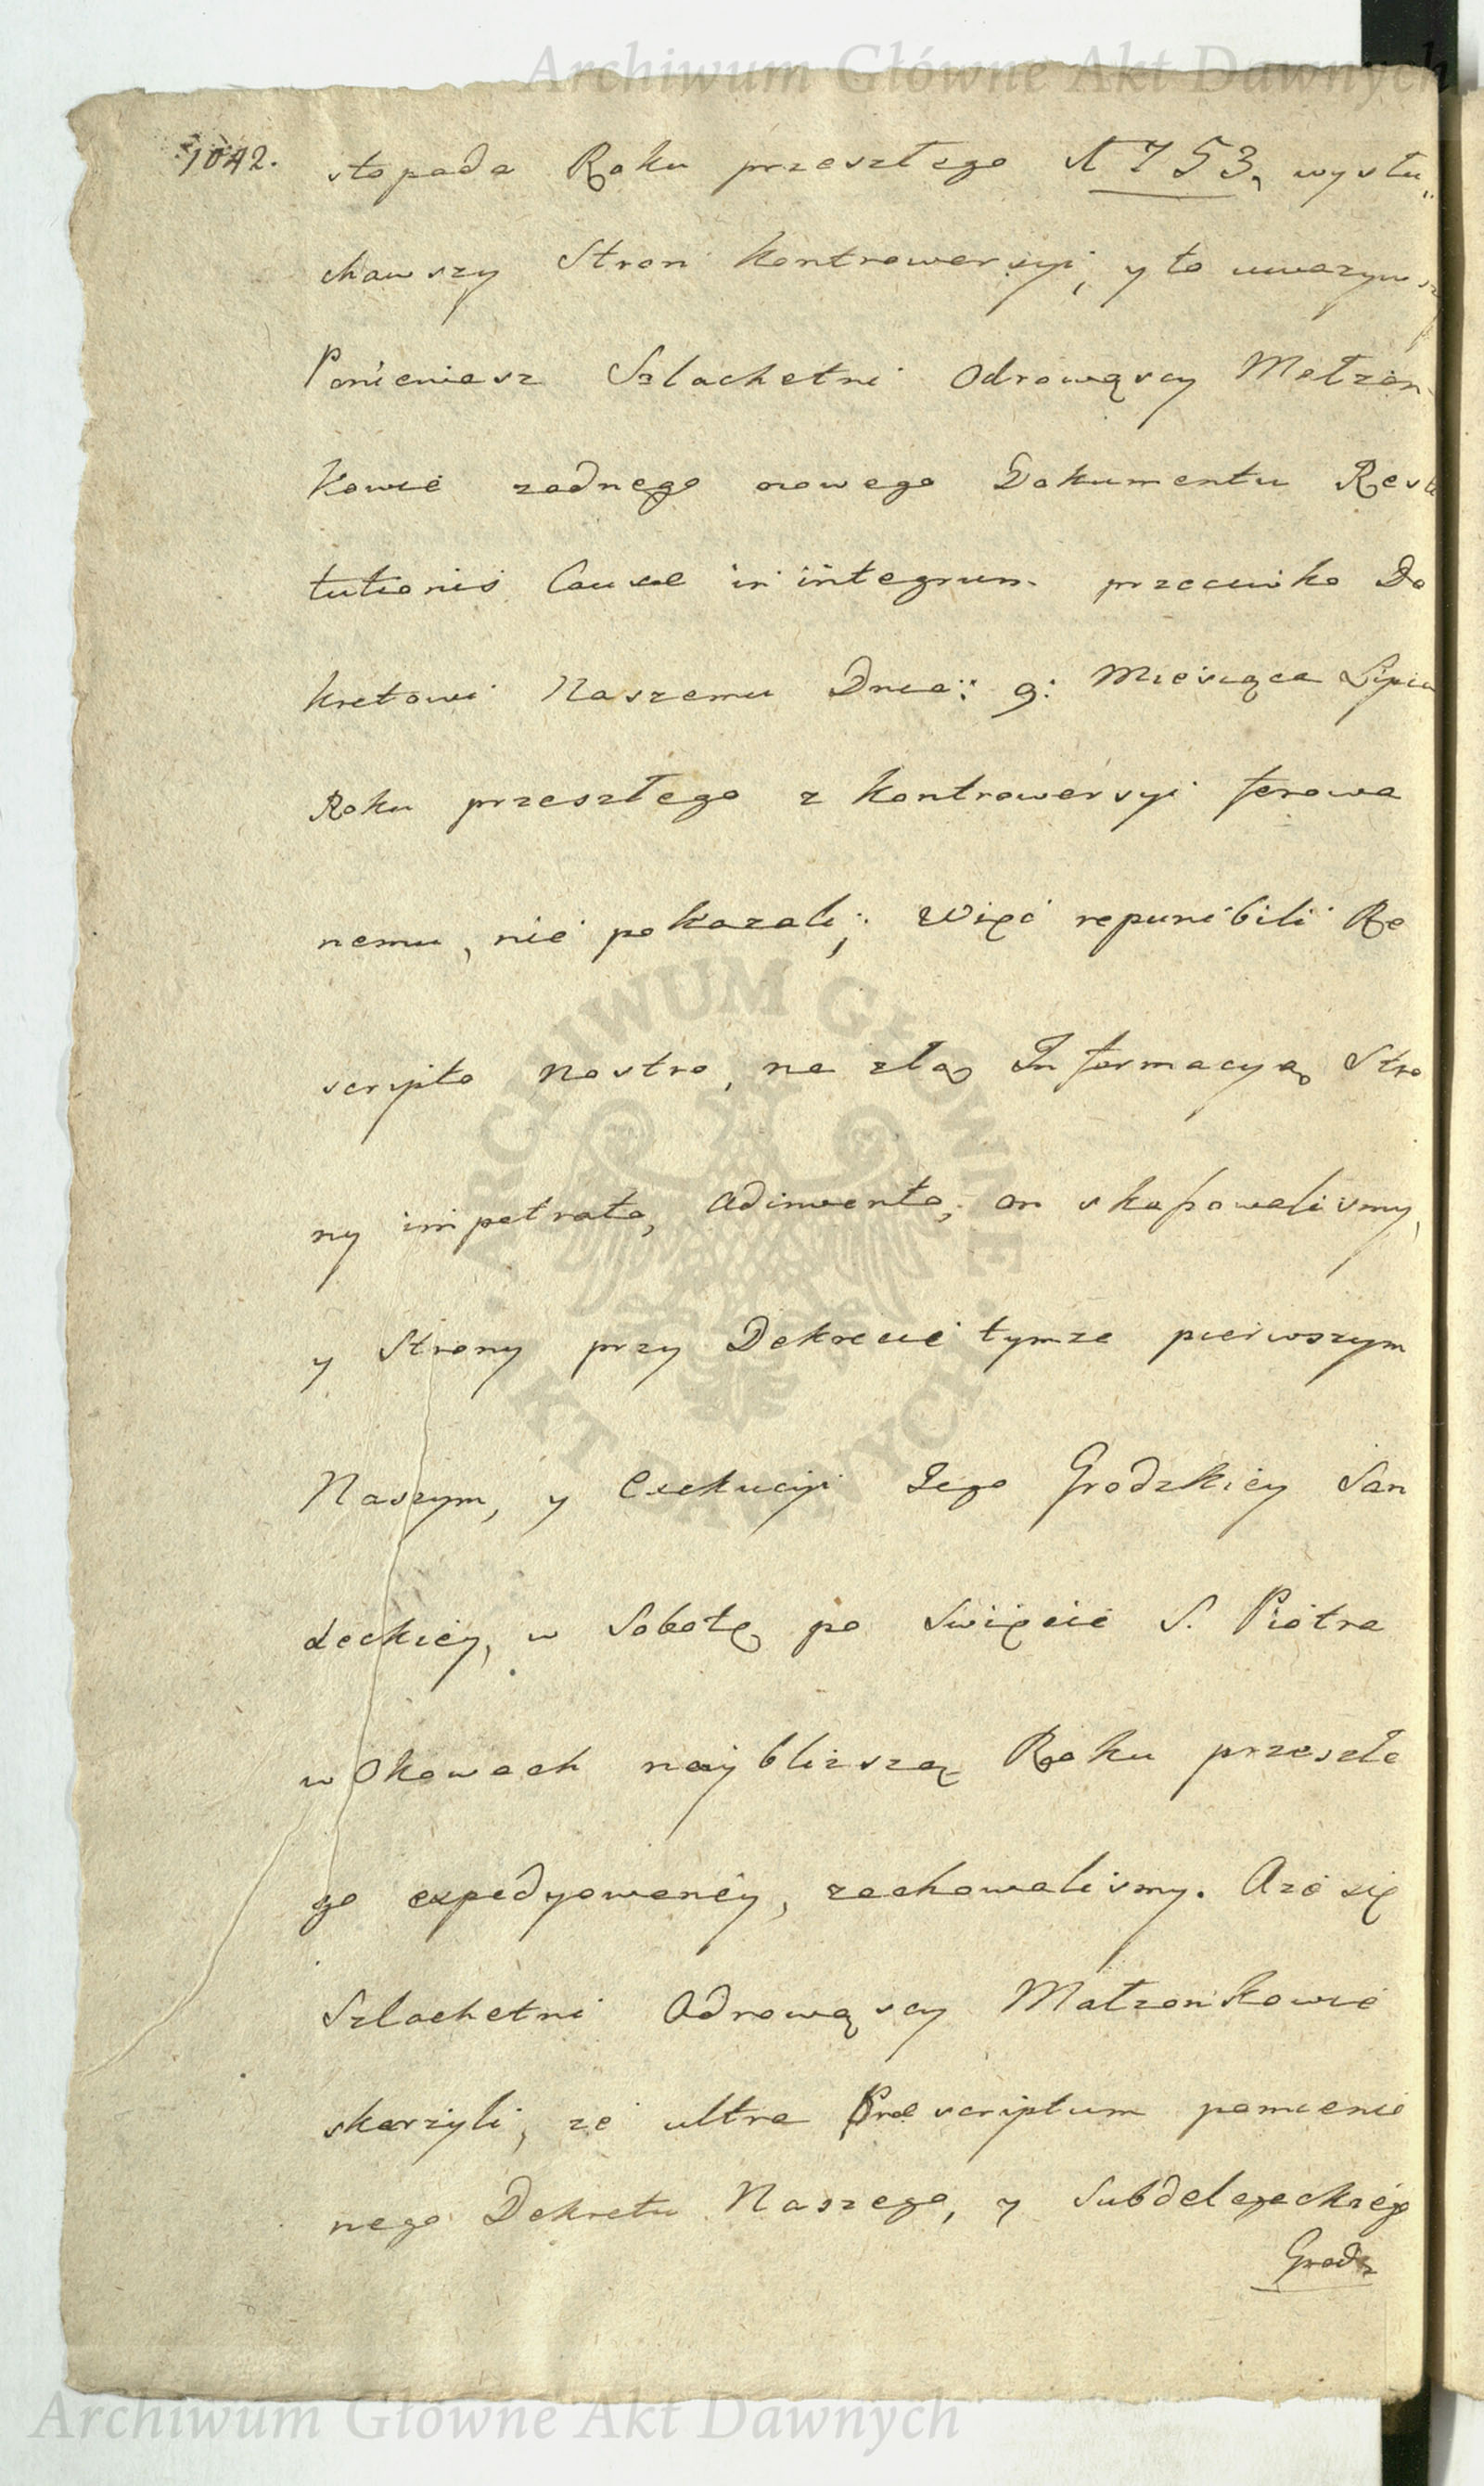 Archiwum Główne Akt Dawnych
1042.
stopada Roku przeszłego 1753, wysłu„
chawszy Stron kontrowersyi, y to uwazyws
Ponieniesz Szlachetni Odrowąscy Małzon
kowie zadnego nowego Dokumentu Resti
tutionis Causae in integrum przeciwko De
kretowi Naszemu Dnia: 9: Miesiąca Lipca
Roku przeszłego z kontrowersyi ferowa
nemu, nie pokazali; Więc repunibili Re
scripto Nostro, na złą Informacyą Stro
ny impetrato, adinvento, on skassowalismy,
y Strony przy Dekrecie tymze pierwszym
Naszym, y Exekucyi Jego Grodzkiey San
deckiey, w Sobotę po Swięcie S. Piotra
w Okowach naybliższą Roku przeszłe
go expedyowaney, zachowalismy. Aze się
Szlachetni Odrowąscy Małzonkowie
skarzyli, ze ultra Praescriptum pomienio
nego Dekretu Naszego, y Subdelegackiego
Grodz
ARCHIWUM GŁÓWNE AKT DAWNYCH
Archiwum Główne Akt Dawnych